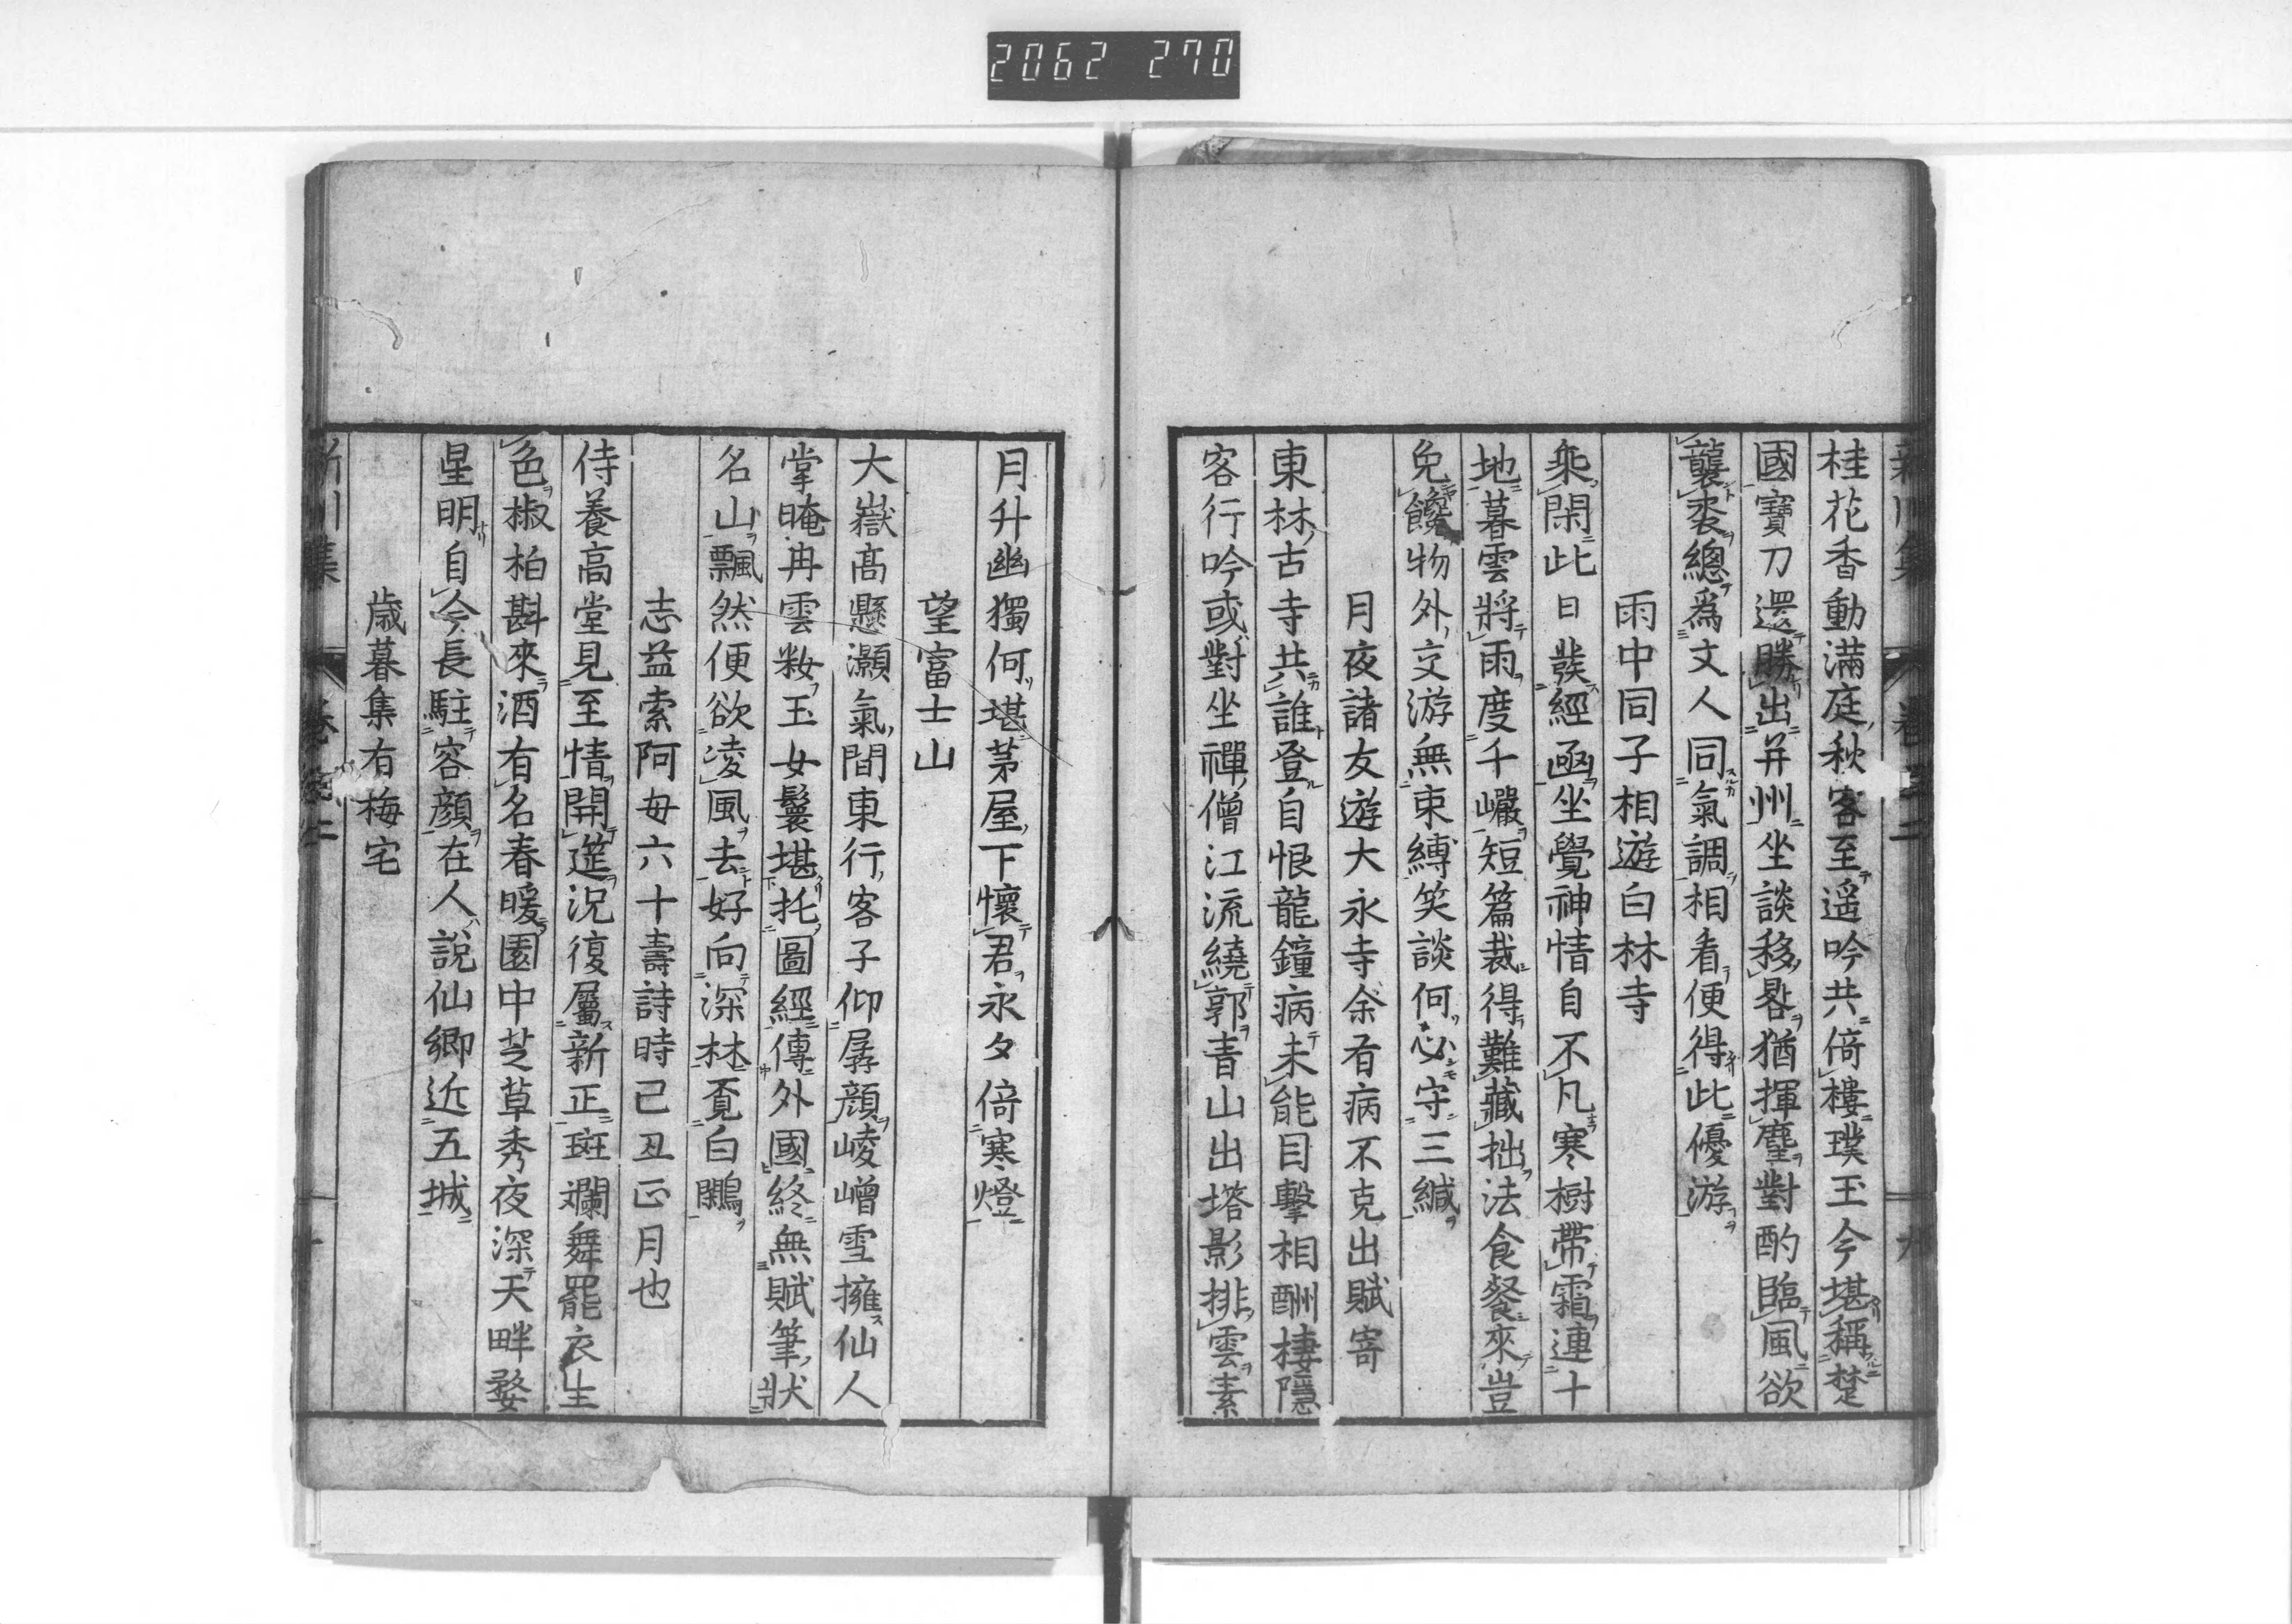 2062 270
桂花香動滿庭秋客至遥吟共倚樓璞玉今堪稱楚
國寶刀還勝出并州坐談移晷猶揮麈對酌臨風欲
襲裘總爲文人同氣調相看便得此優游
雨中同子相遊白林寺
乘閑此日發經函坐覺神情自不凡寒樹帶霜連十
地暮雲將雨度千巖短篇裁得難藏拙法食餐來豈
免饞物外文游無束縛笑談何必守三緘
月夜諸友遊大永寺余有病不克出賦寄
東林古寺共誰登自恨龍鐘病未能目擊相酬棲隱
客行吟或對坐禪僧江流繞郭青山出塔影排雲素
月升幽獨何堪茅屋下懷君永夕倚寒燈
望富士山
大嶽高懸灝氣間東行客子仰孱顔崚嶒雪擁仙人
掌晻冉雲粧玉女鬟堪托圖經傳外國終無賦筆狀
名山飄然便欲凌風去好向深林覔白鷴
志益索阿母六十壽詩時己丑正月也
侍養高堂見至情開筵況復屬新正斑斕舞罷衣生
色椒柏斟來酒有名春暖園中芝草秀夜深天畔婺
星明自今長駐容顔在人說仙鄉近五城
歳暮集有梅宅